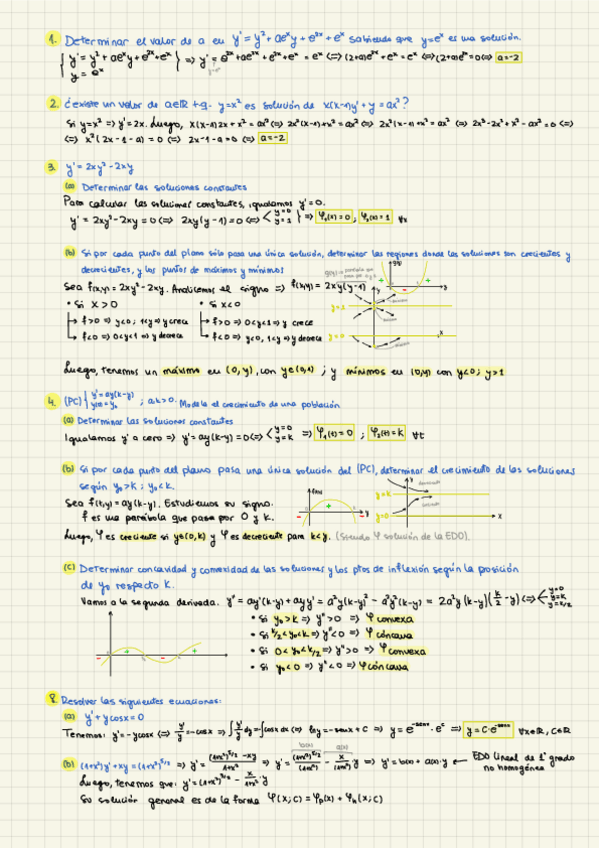 1. Determinar el valor de a en y' = y² + ae^x y + e^2x + e^x sabiendo que y = e^x es una solución.
{ y' = y² + ae^x y + e^2x + e^x
y = e^x } => y' = e^2x + ae^2x + e^2x + e^x = e^x <=> (2+a)e^2x + e^x = e^x <=> (2+a)e^2x = 0 <=> a = -2
2. ¿existe un valor de a∈ℝ t.q. y = x² es solución de x(x-1)y' + y = ax²?
Si y = x² => y' = 2x. Luego, x(x-1)2x + x² = ax² <=> 2x²(x-1) + x² = ax² <=> 2x²(x-1) + x² = ax² <=> 2x³ - 2x² + x² - ax² = 0 <=>
<=> x²(2x - 1 - a) = 0 <=> 2x - 1 - a = 0 <=> a = -2
3. y' = 2xy² - 2xy
(a) Determinar las soluciones constantes
Para calcular las soluciones constantes, igualamos y' = 0.
y' = 2xy² - 2xy = 0 <=> 2xy(y-1) = 0 <=> < y = 0 y = 1 } => φ₁(x) = 0 ; φ₂(x) = 1 ∀x
(b) Si por cada punto del plano sólo pasa una única solución, determinar las regiones donde las soluciones son crecientes y
decrecientes, y los puntos de máximos y mínimos
Sea f(x,y) = 2xy² - 2xy. Analicemos el signo => f(x,y) = 2xy(y-1)
• Si x > 0 • Si x < 0
f > 0 => y < 0; 1 < y => y crece f > 0 => 0 < y < 1 => y crece
f < 0 => 0 < y < 1 => y decrece f < 0 => y < 0, 1 < y => y decrece
y = 1
y = 0
Luego, tenemos un máximo en (0,y), con y∈(0,1) ; y mínimos en (0,y) con y < 0 ; y > 1
4. (PC) { y' = ay(k-y) y(0) = y₀ ; a,k > 0. Modela el crecimiento de una población
(a) Determinar las soluciones constantes
Igualamos y' a cero => y' = ay(k-y) = 0 <=> < y = 0 y = k => φ₁(t) = 0 ; φ₂(t) = k ∀t
(b) Si por cada punto del plano pasa una única solución del (PC), determinar el crecimiento de las soluciones
según y₀ > k ; y₀ < k.
Sea f(t,y) = ay(k-y). Estudiemos su signo.
f es una parábola que pasa por 0 y k.
y = k
y = 0
Luego, φ es creciente si y∈(0,k) y φ es decreciente para k < y. (Siendo φ solución de la EDO).
(c) Determinar concavidad y convexidad de las soluciones y los ptos de inflexión según la posición
de y₀ respecto k.
Vamos a la segunda derivada. y'' = ay'(k-y) + ay y' = a²y(k-y)² - a²y²(k-y) = 2a²y(k-y)(k/2 - y) <=> < y = 0 y = k y = k/2
• Si y₀ > k => y'' > 0 => φ convexa
• Si k/2 < y₀ < k => y'' < 0 => φ cóncava
• Si 0 < y₀ < k/2 => y'' > 0 => φ convexa
• Si y₀ < 0 => y'' < 0 => φ cóncava
8. Resolver las siguientes ecuaciones:
(a) y' + y cosx = 0
Tenemos: y' = -y cosx <=> y'/y = -cosx => ∫ y'/y dy = ∫ cosx dx <=> log y = -senx + C => y = e^-senx · e^C => y = C·e^-senx ∀x∈ℝ, C∈ℝ
(b) (1+x²)y' + xy = (1+x²)^5/2 => y' = ((1+x²)^5/2 - xy)/(1+x²) => y' = (1+x²)^5/2/(1+x²) - x/(1+x²) y => y' = b(x) + a(x)·y ← EDO lineal de 1º grado
no homogénea
Luego, tenemos que: y' = (1+x²)^3/2 - x/(1+x²) · y
Su solución general es de la forma φ(x;C) = φp(x) + φh(x;C)